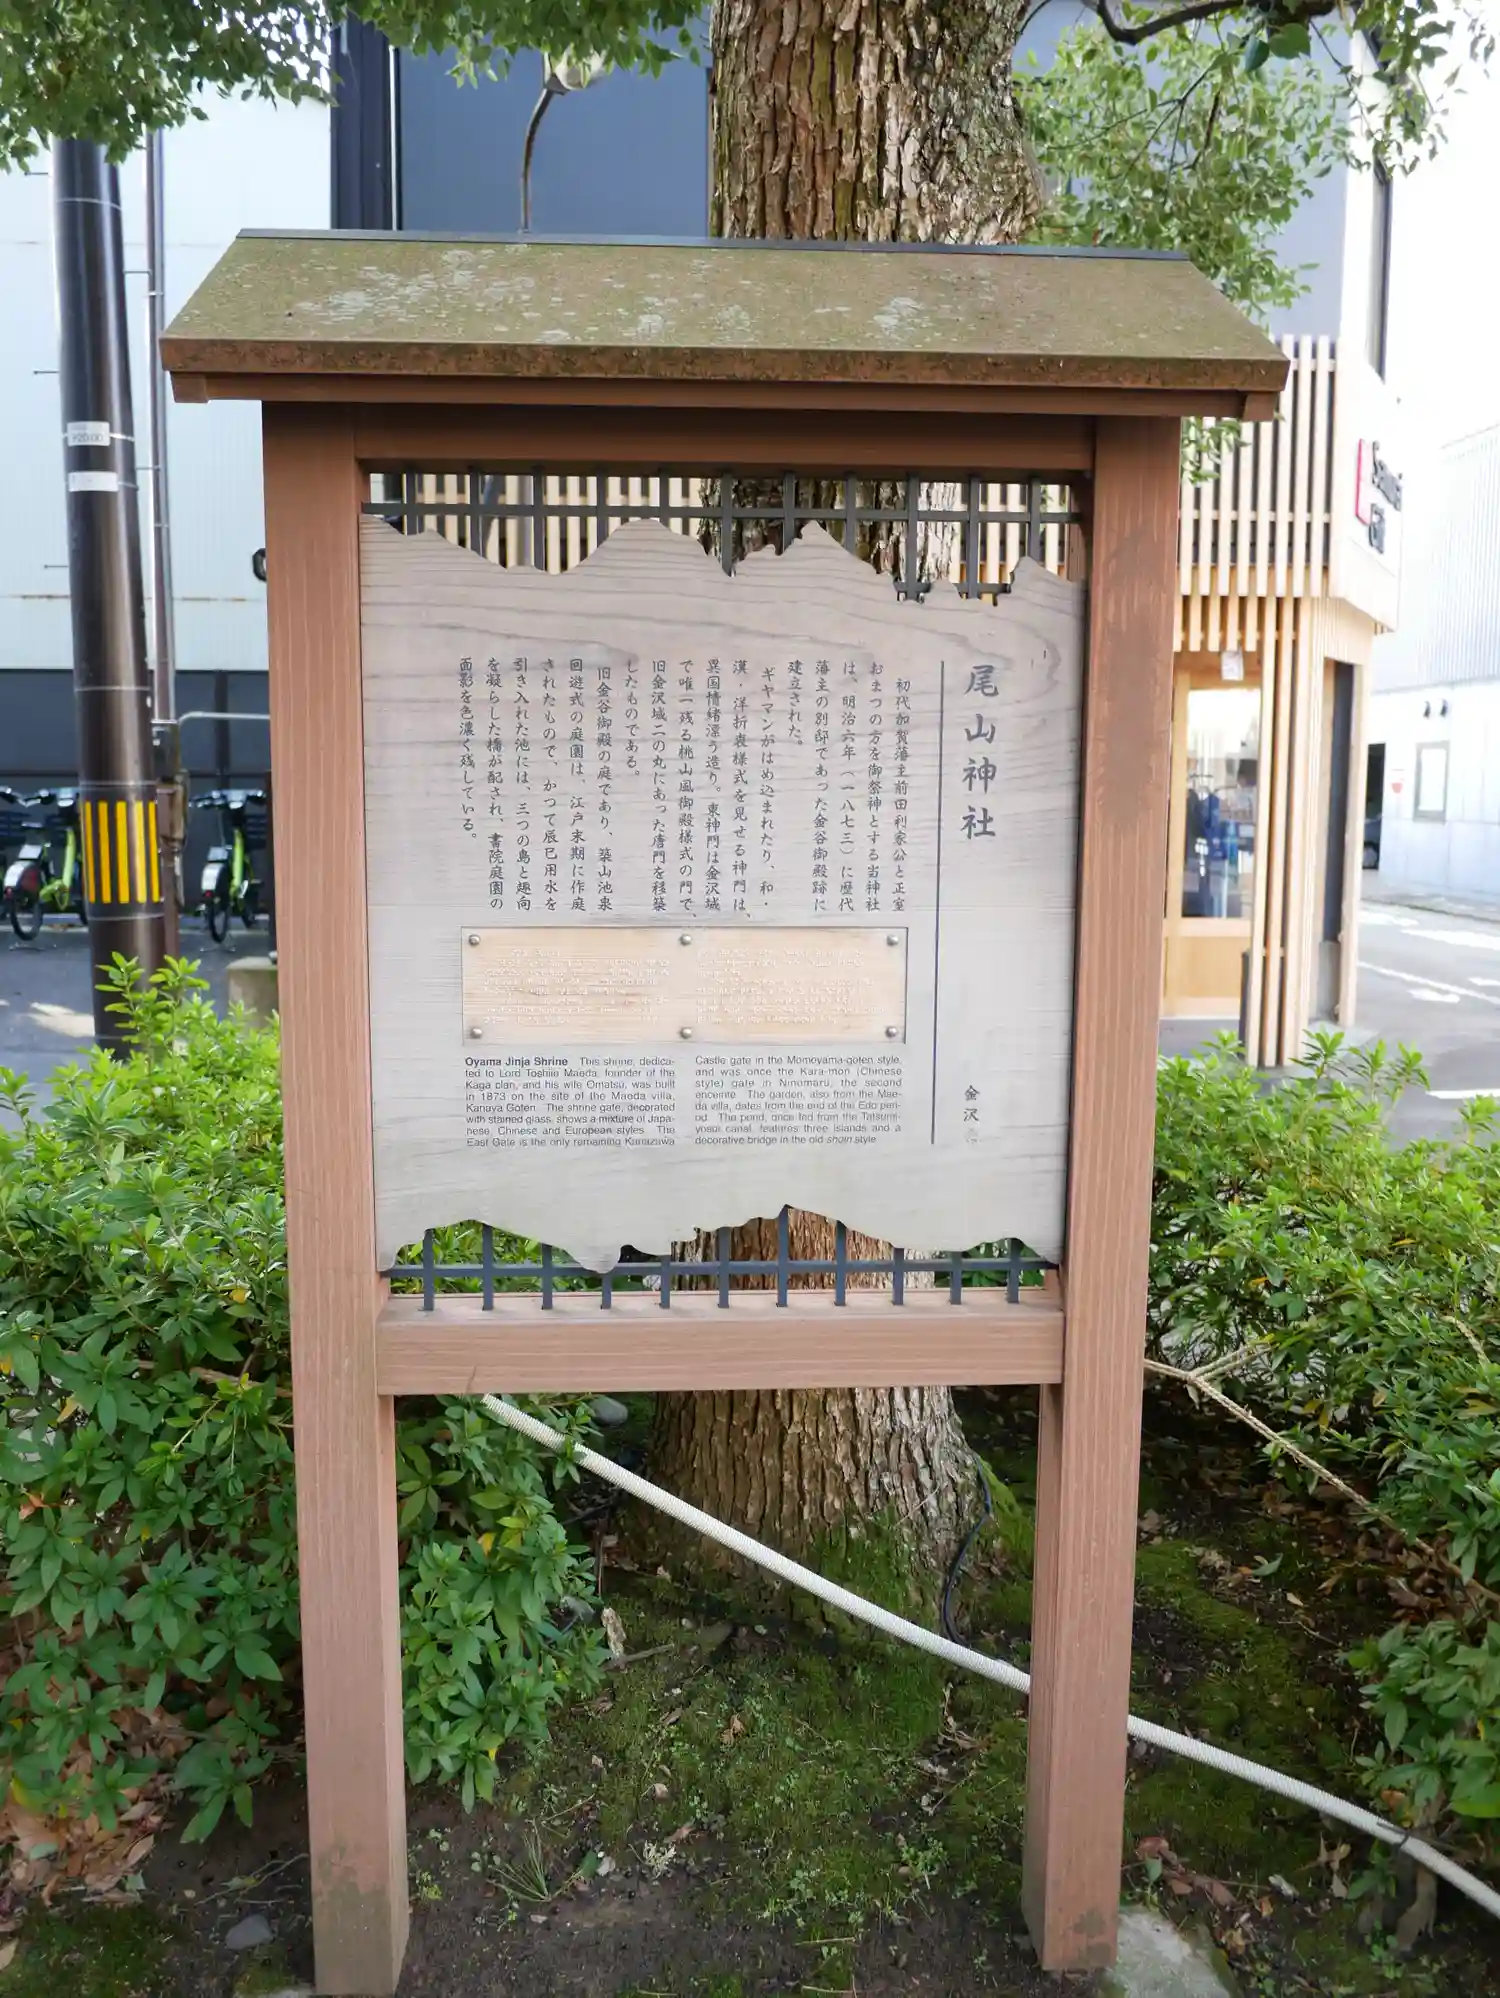 尾山神社
初代加賀藩主前田利家公と正室
おまつの方を御祭神とする当神社
は、明治六年（一八七三）に歴代
藩主の別邸であった金谷御殿跡に
建立された。
ギヤマンがはめ込まれたり、和・
漢・洋折衷様式を見せる神門は、
異国情緒漂う造り。東神門は金沢城
で唯一残る桃山風御殿様式の門で、
旧金沢城二の丸にあった唐門を移築
したものである。
旧金谷御殿の庭であり、築山池泉
回遊式の庭園は、江戸末期に作庭
されたもので、かつて辰巳用水を
引き入れた池には、三つの島と趣向
を凝らした橋が配され、書院庭園の
面影を色濃く残している。
金沢
Oyama Jinja Shrine This shrine, dedica-
ted to Lord Toshiie Maeda, founder of the
Kaga clan, and his wife Omatsu, was built
in 1873 on the site of the Maeda villa,
Kanaya Goten. The shrine gate, decorated
with stained glass, shows a mixture of Japa-
nese, Chinese and European styles. The
East Gate is the only remaining Kanazawa
Castle gate in the Momoyama-goten style,
and was once the Kara-mon (Chinese
style) gate in Ninomaru, the second
enceinte. The garden, also from the Mae-
da villa, dates from the end of the Edo peri-
od. The pond, once fed from the Tatsumi-
yosui canal, features three islands and a
decorative bridge in the old shoin style